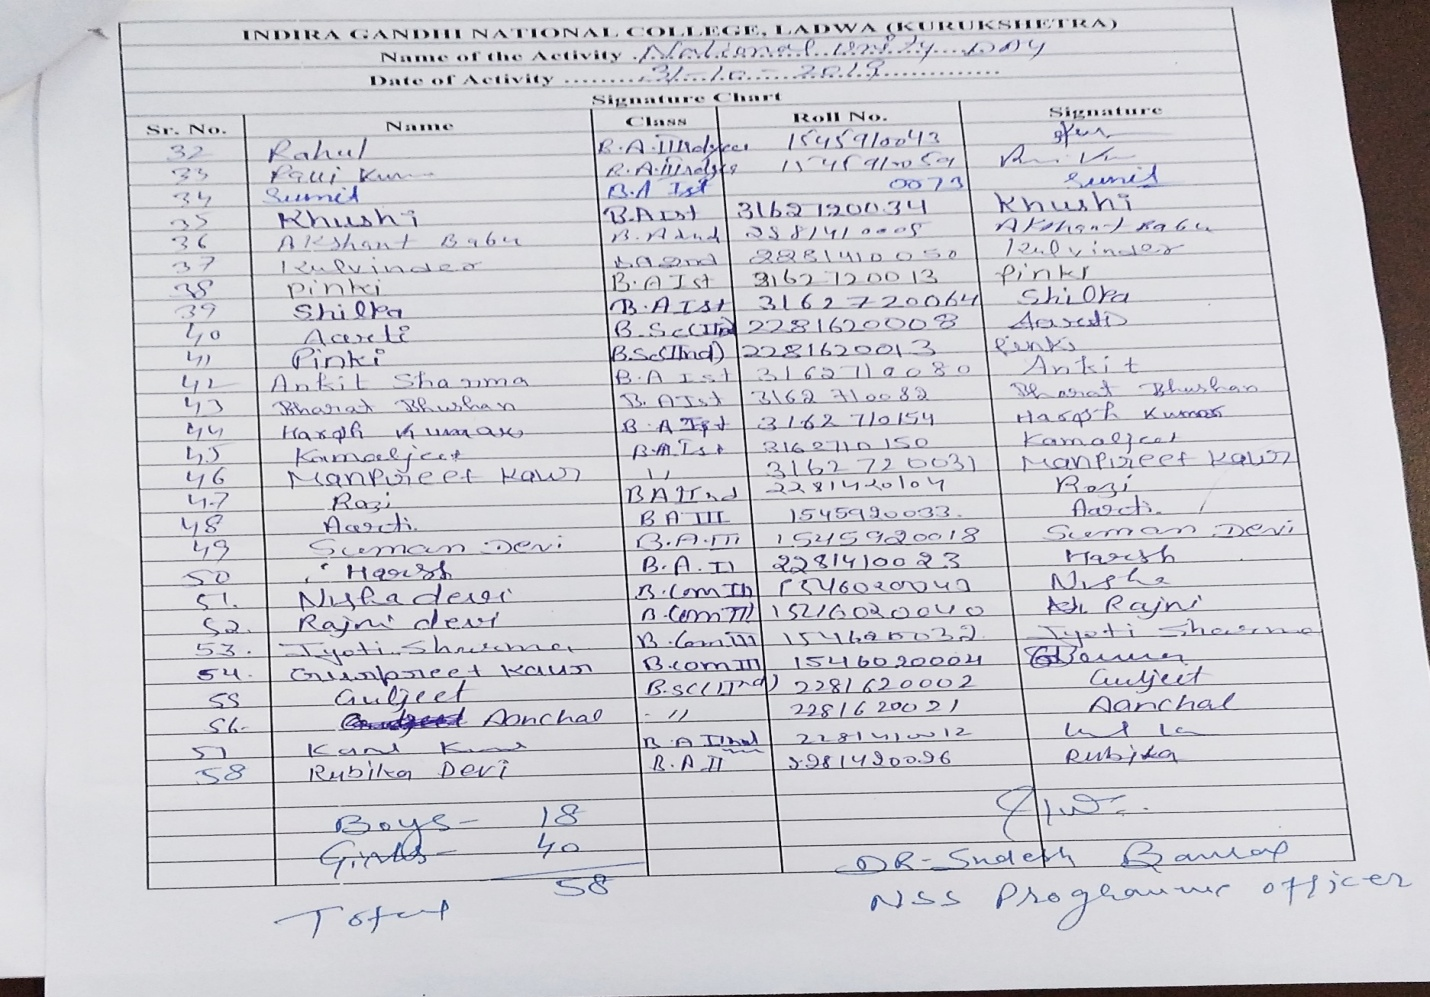 INDIRA GANDHI NATIONAL COLLEGE, LADWA (KURUKSHETRA)
Name of the Activity National Unity Day
Date of Activity 31-10-2019
Signature Chart
Sr. No. Name Class Roll No. Signature
32 Rahul B.A.IIIrdyear 1545910043
33 B.A.IIIrdyr 1545910059
34 Sumit B.A Ist 0073 Sumit
35 Khushi B.A Ist 3162720034 Khushi
36 Akshant Babu B.A IInd 2281410005 Akshant Babu
37 Kulvinder 2281410050 Kulvinder
38 Pinki B.A Ist 3162720013 Pinki
39 Shilpa B.A Ist 3162720064 Shilpa
40 Aareti B.Sc(IInd) 2281620008 Aareti
41 Pinki B.Sc(IInd) 2281620013 Pinki
42 Ankit Sharma B.A Ist 3162710080 Ankit
43 Bharat Bhushan B.A Ist 3162710082 Bharat Bhushan
44 Harsh Kumar B.A Ist 3162710154 Harsh Kumar
45 Kamaljeet B.A Ist 3162710150 Kamaljeet
46 Manpreet Kaur 11 3162720031 Manpreet Kaur
47 Rozi BA IInd 2281420104 Rozi
48 Aarti BA III 1545920033 Aarti
49 Suman Devi B.A.III 1545920018 Suman Devi
50 Harsh B.A.II 2281410023 Harsh
51. Nisha devi B.Com III 1546020042 Nisha
52. Rajni devi B.Com III 1546020040 Rajni
53. Jyoti Sharma B.Com III 1546020032 Jyoti Sharma
54. Gurpreet Kaur B.com III 1546020004
55 Guljeet B.Sc(IInd) 2281620002 Guljeet
56. Aanchal - 11 2281620021 Aanchal
57 B.A IInd 2281410012
58 Rubika Devi B.A II 2281420096 Rubika
Boys - 18
Girls - 40
DR-Sudesh Bansal
58
Total
NSS Programme officer